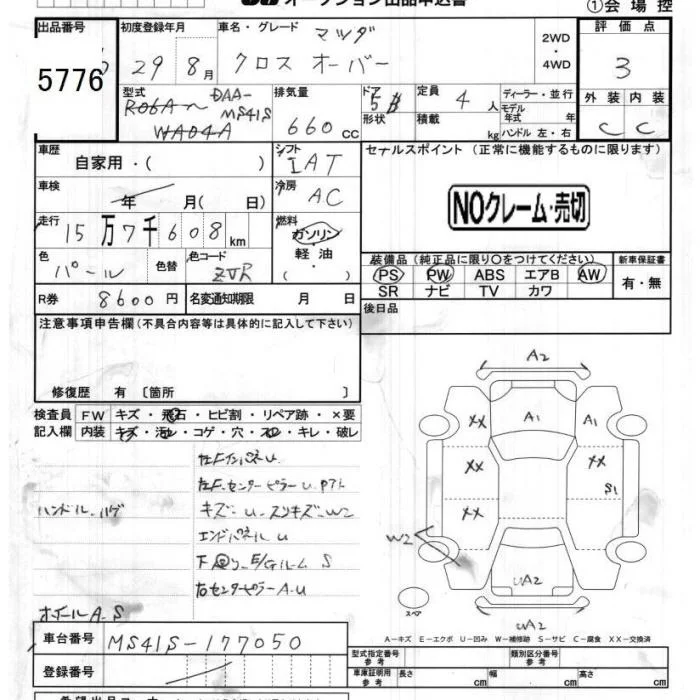 オークション出品申込書
①会場控
出品番号 初度登録年月 車名・グレード マツダ 2WD・4WD 評価点
5776 29 8月 クロスオーバー 3
型式 DAA-MS41S 排気量 660cc ドア 5 形状 定員 4人 積載 kg ディーラー・並行 モデル年式 年 ハンドル 左・右 外装 内装
C C
車歴 自家用・( ) シフト IAT セールスポイント (正常に機能するものに限ります)
車検 年 月( 日) 冷房 AC
NOクレーム・売切
走行 15万7千608km 燃料 ガソリン・軽油・( )
色 パール 色替 色コード ZVR
装備品 (純正品に限り○をつけてください) 新車保証書
PS PW ABS エアB AW 有・無
SR ナビ TV カワ
R券 8600円 名変通知期限 月 日
後日品
注意事項申告欄 (不具合内容等は具体的に記入して下さい)
修復歴 有 〔箇所 〕
検査員記入欄 FW キズ・飛石・ヒビ割・リペア跡・×要
内装 キズ・汚レ・コゲ・穴・スレ・キレ・破レ
左FインパネU
左F.センターピラーU
ハンドルハゲ キズ・U・スリキズ・W2
エンドパネルU
E/Gルーム S
右センターピラーA.U
ホイールA.S
A2
XX A1 A1
XX XX
S1
XX
W2
UA2
スペア
UA2
A-キズ E-エクボ U-凹み W-補修跡 S-サビ C-腐食 XX-交換済
車台番号 MS41S-177050
登録番号
型式指定番号 参考 類別区分番号 参考
車庫証明用 参考 長さ cm 幅 cm 高さ cm